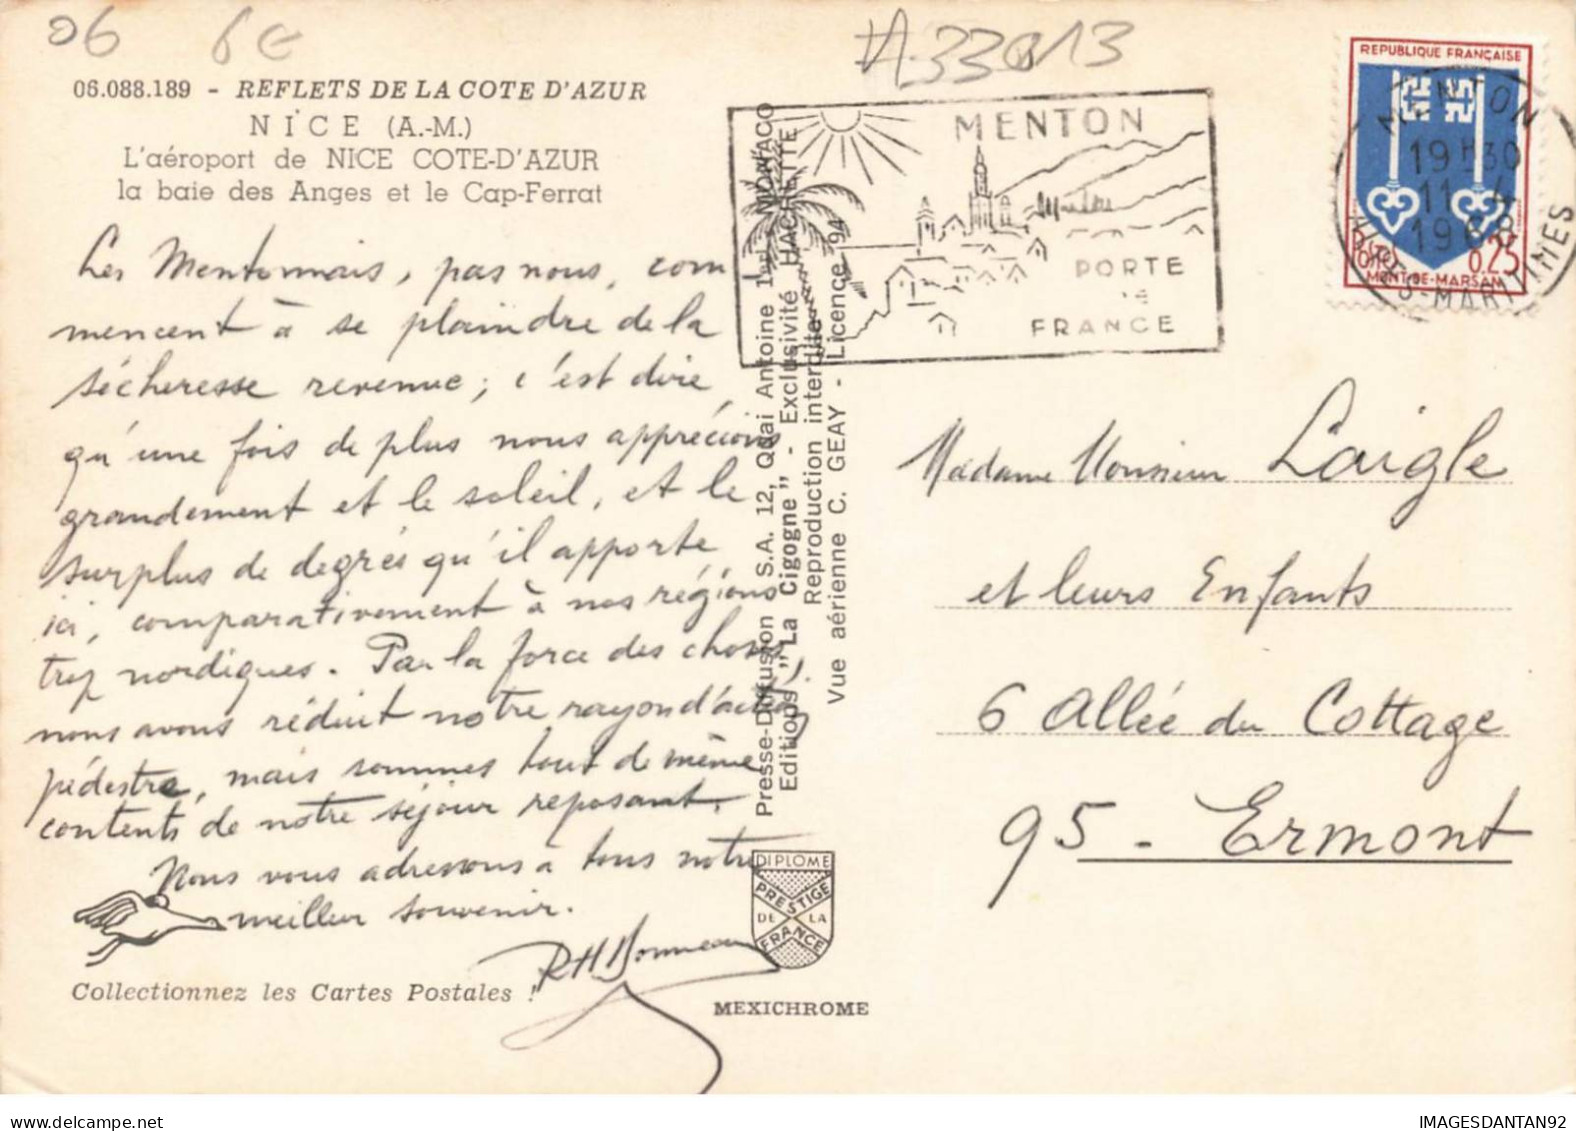 06 6€
#A33013
06.088.189 - REFLETS DE LA COTE D'AZUR
NICE (A.-M.)
L'aéroport de NICE COTE-D'AZUR
la baie des Anges et le Cap-Ferrat
Les Mentonnais, pas nous, com
mencent à se plaindre de la
sécheresse revenue ; c'est dire
qu'une fois de plus nous apprécions
grandement et le soleil, et le
surplus de degrés qu'il apporte
ici, comparativement à nos régions
trop nordiques. Par la force des choses,
nous avons réduit notre rayon d'action
pédestre, mais sommes tout de même
contents de notre séjour reposant.
Nous vous adressons à tous notre
meilleur souvenir.
RH Bonneau
Collectionnez les Cartes Postales !
Presse-Diffusion S.A. 12, Quai Antoine 1er - MONACO
Editions "La Cigogne" - Exclusivité HACHETTE
Reproduction interdite
Vue aérienne C. GEAY - Licence 94
DIPLOME
PRESTIGE
DE LA
FRANCE
MEXICHROME
MENTON
PORTE
de
FRANCE
REPUBLIQUE FRANÇAISE
Postes 0,25
MONT-DE-MARSAN
MENTON
19H30
11-4
1968
ALPES-MARITIMES
Madame Monsieur Laigle
et leurs Enfants
6 Allée du Cottage
95 - Ermont
IMAGESDANTAN92